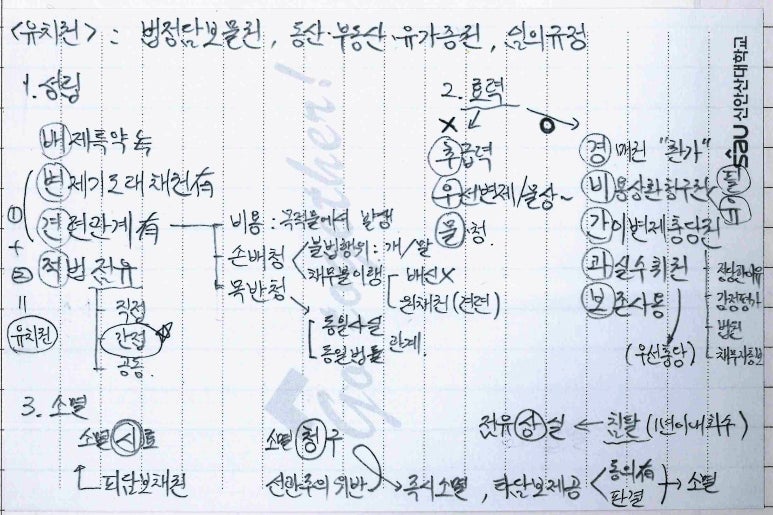 <유치권> : 법정담보물권, 동산·부동산·유가증권, 임의규정
1. 성립
배제특약 无
변제기도래 채권有
견련관계 有
적법 점유
직접
간접
공동
① + ② = 유치권
비용 : 목적물에서 발생
손배청
불법행위 : 개/말
채무불이행
배신 X
원채권 (견련)
목반청
동일사실
동일법률
관계.
2. 효력
X
추급력
우선변제/물상~
물·청.
O
경매권 "환가"
비용상환청구권
필
유
간이변제충당권
정당한 이유
감정평가
법원
채무자통보
과실수취권
(우선충당)
보존사용
3. 소멸
소멸시효
피담보채권
소멸청구
선관주의 위반
즉시소멸, 타담보제공
동의有
판결
→ 소멸
점유상실 ← 침탈 (1년이내 회수)
Go together!
sau 신안산대학교